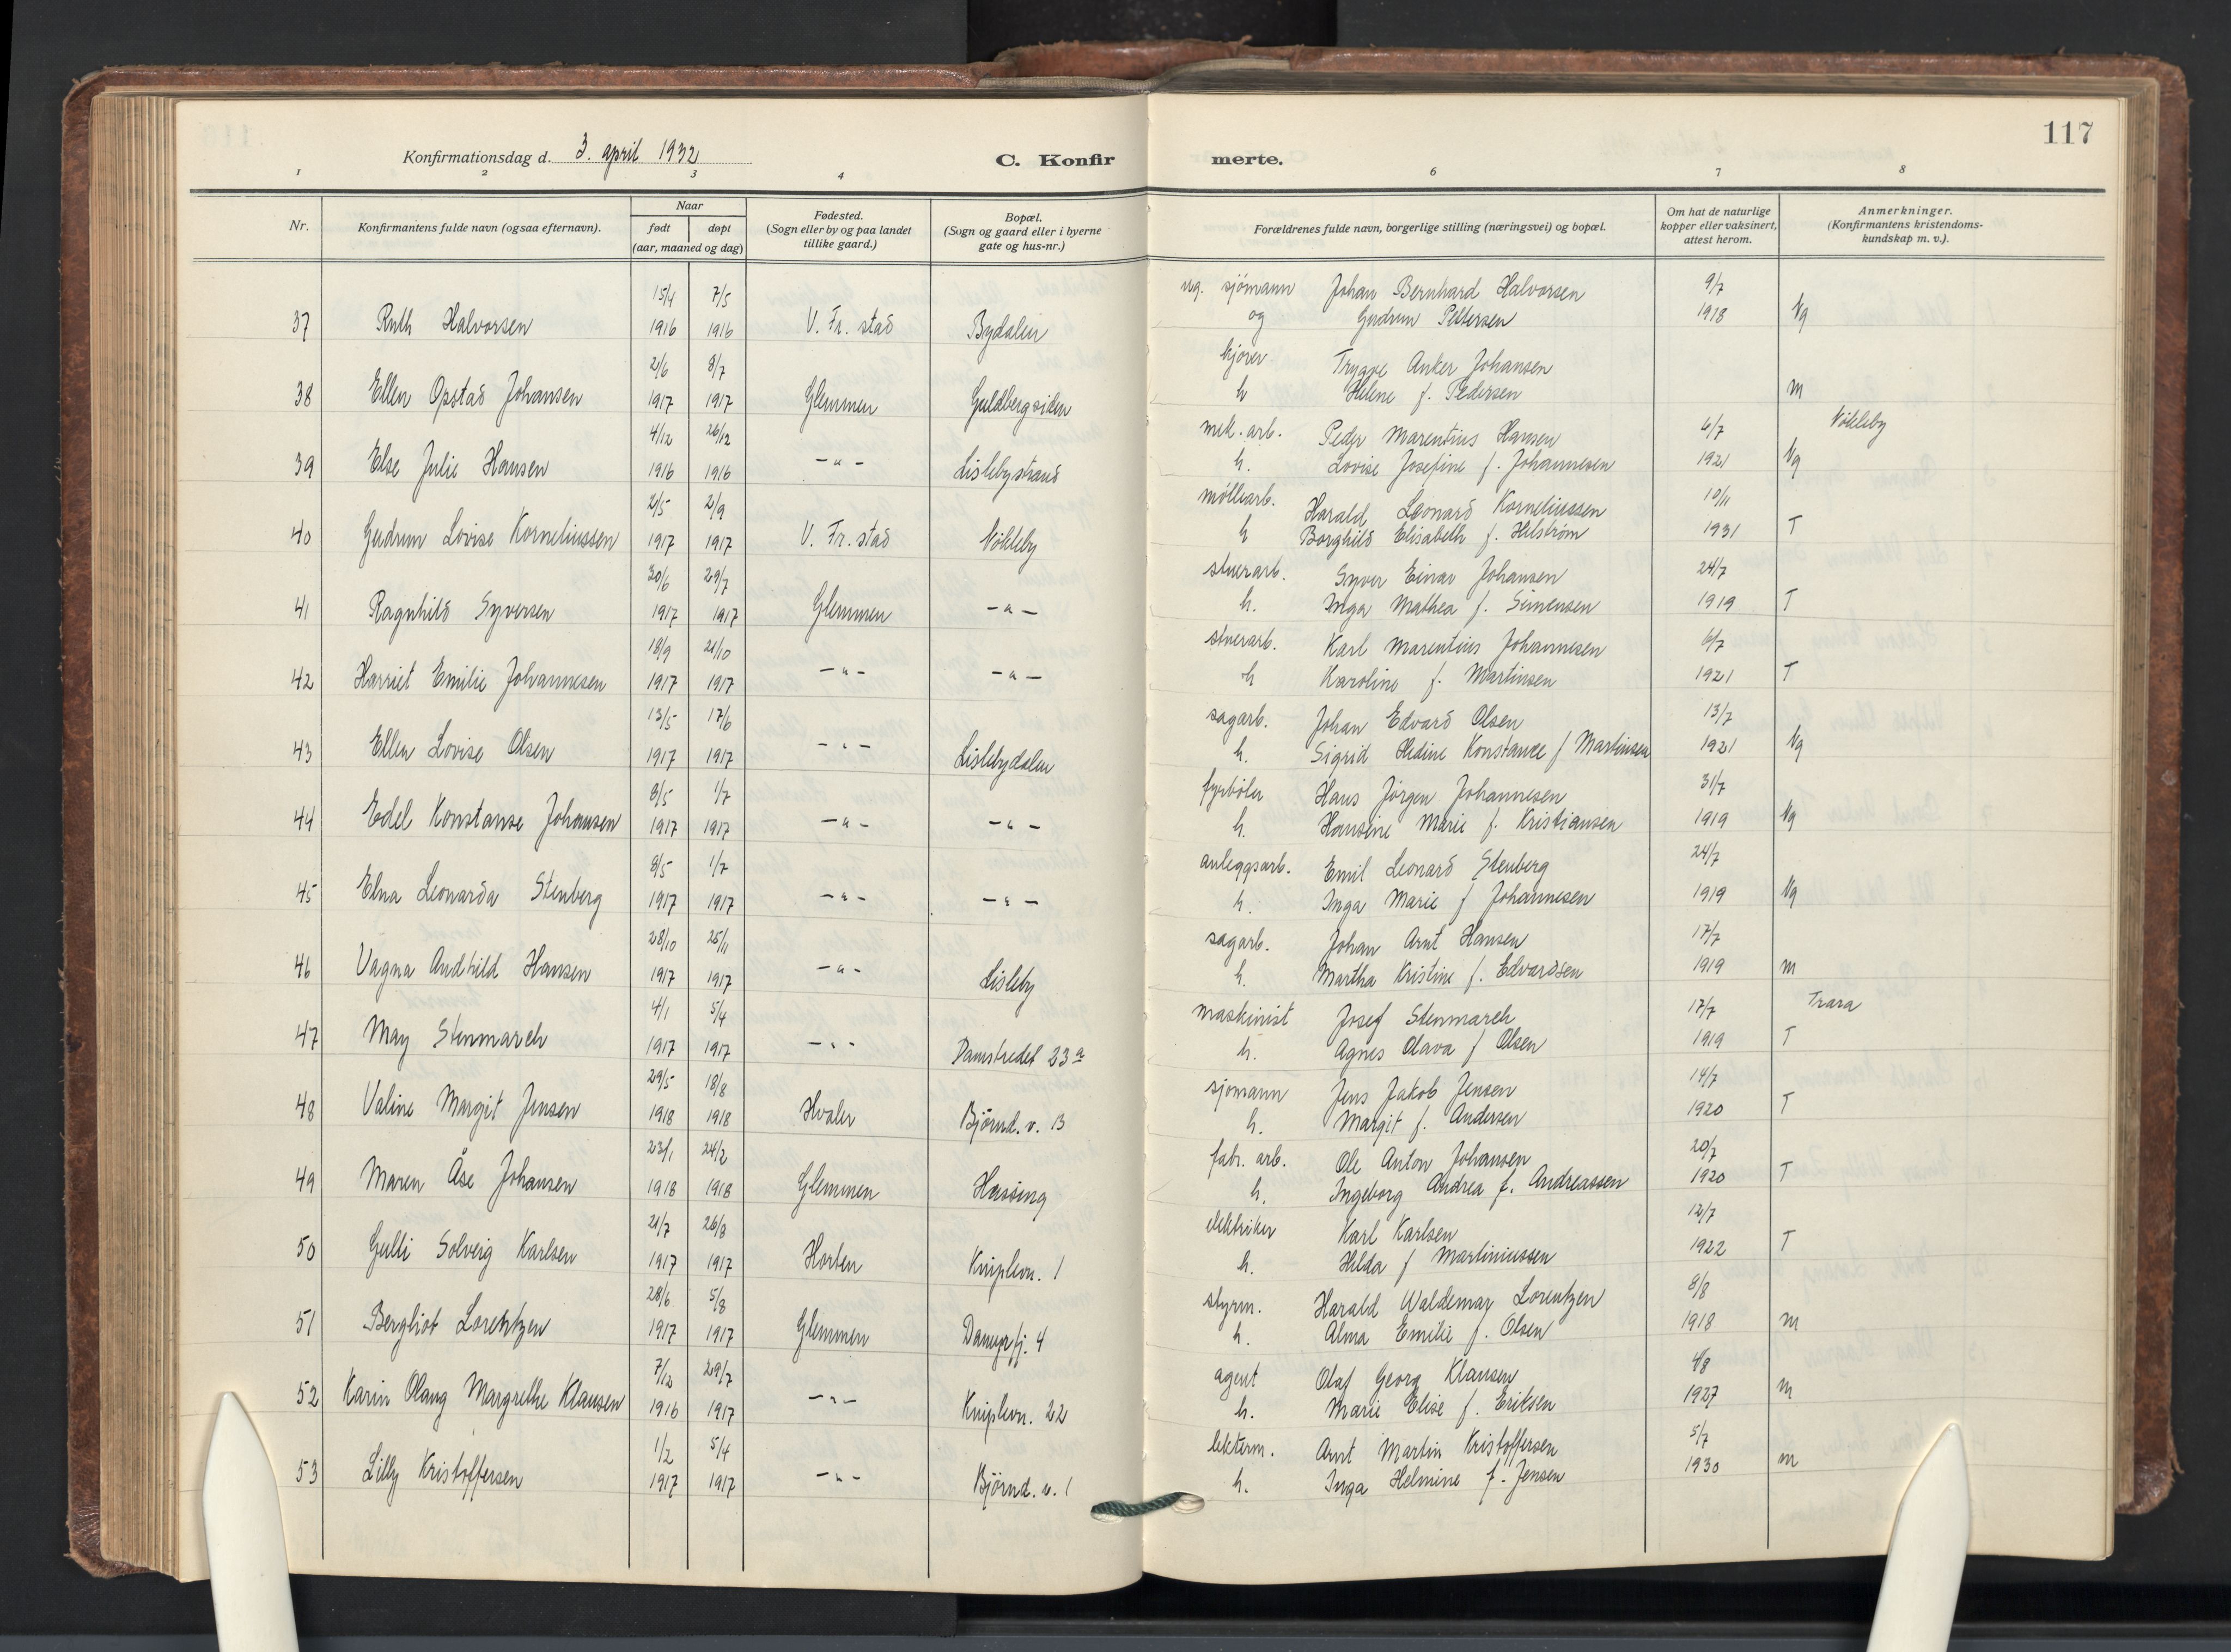 117
Konfirmationsdag d. 3. april 1932
C. Konfirmerte.
1 2 3 4 6 7 8
Nr. | Konfirmantens fulde navn (ogsaa efternavn). | Naar født døpt (aar, maaned og dag) | Fødested. (Sogn eller by og paa landet tillike gaard.) | Bopæl. (Sogn og gaard eller i byerne gate og hus-nr.) | Forældrenes fulde navn, borgerlige stilling (næringsvei) og bopæl. | Om hat de naturlige kopper eller vaksinert, attest herom. | Anmerkninger. (Konfirmantens kristendomskundskap m. v.).
15/4 7/5 sjömann Johan Bernhard Halvorsen 9/7
37 Ruth Halvorsen 1916 1916 V. Fr. stad Bydalen og Gudrun Pettersen 1918 Ng
2/6 8/7 kjörer Trygve Anker Johansen
38 Ellen Opstad Johansen 1917 1917 Glemmen Guldbergsiden h Helene f. Pedersen m
4/12 26/12 mek. arb. Peder Marentius Hansen 6/7 Nökleby
39 Else Julie Hansen 1916 1916 -"- Lislebystrand h. Lovise Josefine f. Johannesen 1921 Ng
2/5 2/9 mölliarb. Harald Leonard Korneliussen 10/11
40 Gudrun Lovise Korneliussen 1917 1917 V. Fr. stad Nökleby h Borghild Elisabeth f. Helström 1931 T
30/6 29/7 stuerarb. Syver Einar Johansen 24/7
41 Ragnhild Syversen 1917 1917 Glemmen -"- h. Inga Mathea f. Simensen 1919 T
18/9 21/10 stuerarb. Karl Marentius Johannesen 6/7
42 Harriet Emilie Johannesen 1917 1917 -"- -"- h Karoline f. Martinsen 1921 T
13/5 17/6 sagarb. Johan Edvard Olsen 13/7
43 Ellen Lovise Olsen 1917 1917 -"- Lislebydalen h. Sigrid Hedine Konstanse f Martinsen 1921 Ng
8/5 1/7 fyrböter Hans Jörgen Johannesen 31/7
44 Edel Konstanse Johansen 1917 1917 -"- -"- h. Hansine Marie f. Kristiansen 1919 Ng
8/5 1/7 anleggsarb. Emil Leonard Stenberg 24/7
45 Elna Leonarda Stenberg 1917 1917 -"- -"- h. Inga Marie f Johannesen 1919 Ng
28/10 25/11 sagarb. Johan Arnt Hansen 17/7
46 Vagna Andhild Hansen 1917 1917 -"- Lisleby h. Martha Kristine f. Edvardsen 1919 m
4/1 5/4 maskinist Josef Stenmarch 17/7 Trara
47 May Stenmarch 1917 1917 -"- Damstredet 23a h. Agnes Olava f Olsen 1919 T
29/5 18/8 sjömann Jens Jakob Jensen 14/7
48 Valine Margit Jensen 1918 1918 Hvaler Björnd. v. 13 h. Margit f. Andersen 1920 T
23/1 24/2 fabr. arb. Ole Anton Johansen 20/7
49 Maren Åse Johansen 1918 1918 Glemmen Hassing h. Ingeborg Andrea f. Andreassen 1920 T
21/7 26/8 elektriker Karl Karlsen 12/7
50 Gulli Solveig Karlsen 1917 1917 Horten Kniplevn. 1 h. Hilda f Martiniussen 1922 T
28/6 5/8 styrm. Harald Waldemar Lorentzen 8/8
51 Bergliot Lorentzen 1917 1917 Glemmen h. Alma Emilie f. Olsen 1918 m
7/12 29/7 agent Olaf Georg Klausen 4/8
52 Karin Olaug Margrethe Klausen 1916 1917 -"- Kniplevn. 22 h. Marie Elise f. Eriksen 1927 m
1/2 5/4 lekterm. Arnt Martin Kristoffersen 5/7
53 Lilly Kristoffersen 1917 1917 -"- Björnd. v. 1 h. Inga Helmine f. Jensen 1930 m